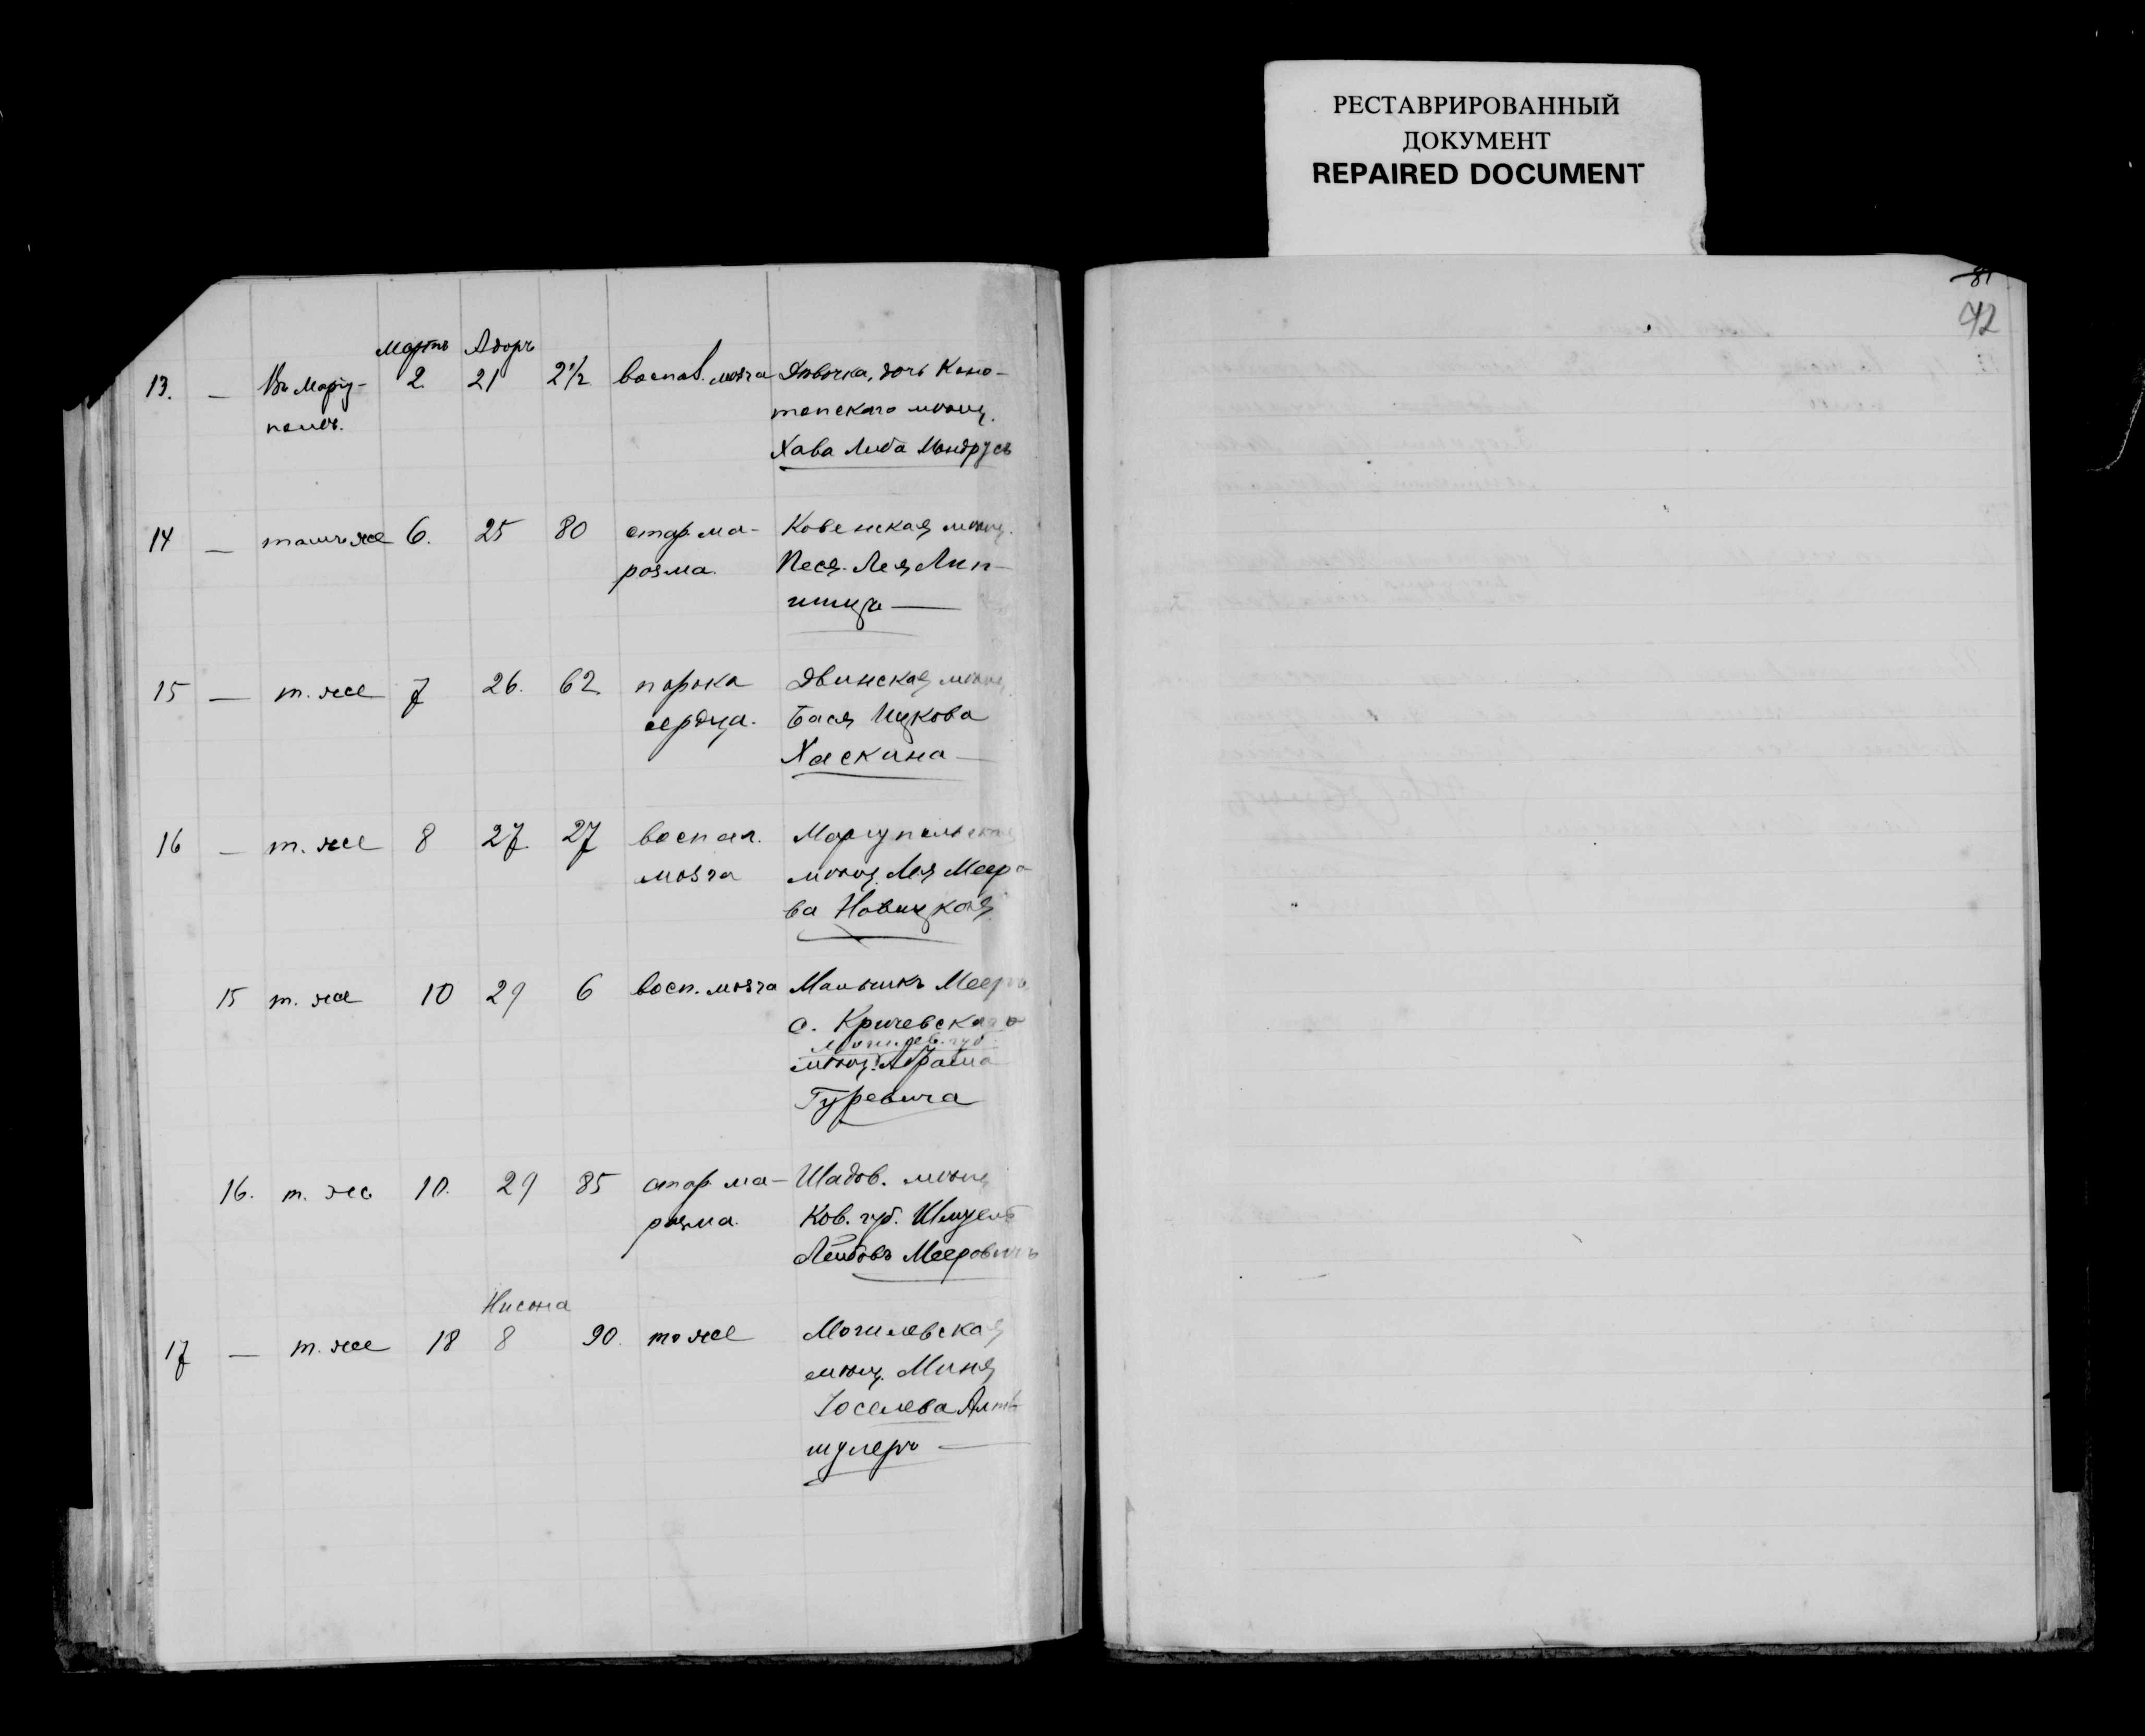 РЕСТАВРИРОВАННЫЙ
ДОКУМЕНТ
REPAIRED DOCUMENT
81
42
Мартъ Адаръ
13. — Въ Маріу- 2 21 2½ воспал. мозга Дѣвочка, дочь Коно-
полѣ. топскаго мѣщ.
Хава Либа Мондрусъ
14 — тамъ же 6. 25 80 стар. ма- Ковенская мѣщ.
разма. Песя-Лея Лип-
шица —
15 — т. же 7 26. 62 порока Двинская мѣщ.
сердца. Бася Ицкова
Хаскина —
16 — т. же 8 27. 27 воспал. Маріупольская
мозга мѣщ. Лея Мееро-
ва Новицкая
15 т. же 10 29 6 восп. мозга Мальчикъ Мееръ
с. Кричевскаго
Могилев. губ.
мѣщ. Абрама
Гуревича
16. т. же 10. 29 85 стар. ма- Шадов. мѣщ.
разма. Ков. губ. Шмуель
Лейбовъ Мееровичъ
Нисона
17 — т. же 18 8 90. тоже Могилевская
мѣщ. Миня
Іоселева Альт-
шулеръ —